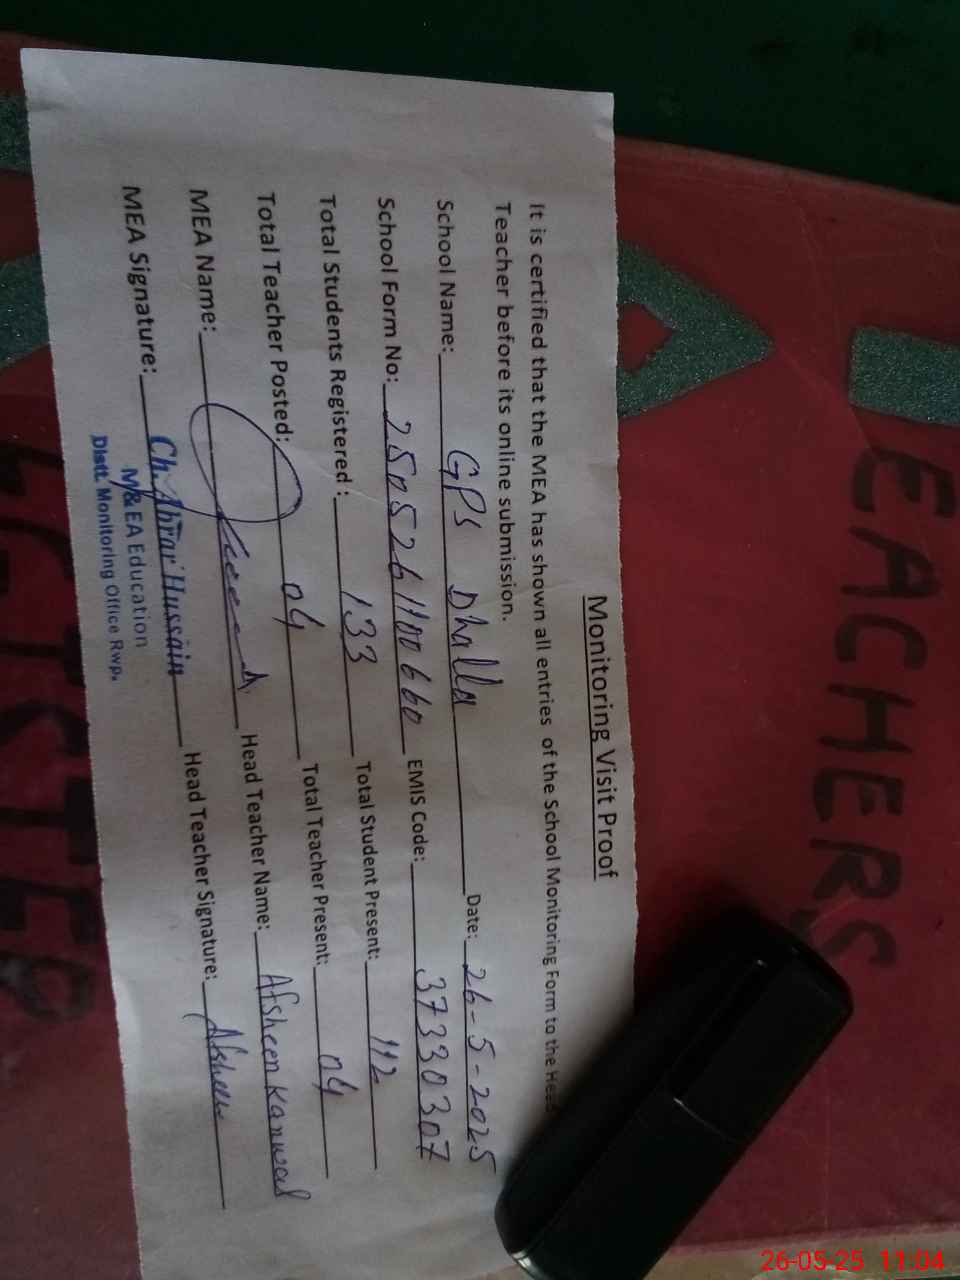 Monitoring Visit Proof
It is certified that the MEA has shown all entries of the School Monitoring Form to the Head
Teacher before its online submission.
School Name: GPS Dhalla Date: 26-5-2025
School Form No: 2505261100660 EMIS Code: 37330307
Total Students Registered: 133 Total Student Present: 112
Total Teacher Posted: 04 Total Teacher Present: 04
MEA Name: Head Teacher Name: Afsheen Kanwal
MEA Signature: Ch. Abrar Hussain Head Teacher Signature: Afsheen
M&EA Education
Distt. Monitoring Office Rwp.
TEACHERS
26-05-25 11:04